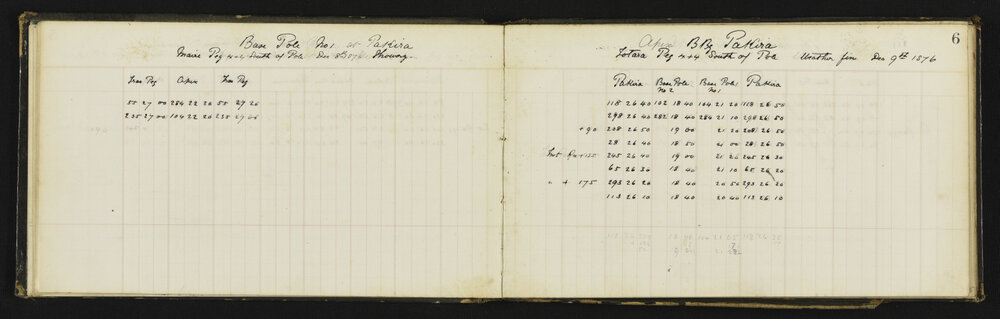 Base Pole No 1 at Pakira
Maire Peg 4x4 South of Pole Dec 8th 1876 Showery
Iron Peg Apex Iron Peg
55 27 00 284 22 20 55 27 20
235 27 00 104 22 20 235 27 00
6
Apex BB2 Pakira
Totara Peg 4x4 South of Pole Weather fine Dec 9th 1876
Pakira Base Pole No 2 Base Pole No 1 Pakira
118 26 40 102 18 40 104 21 20 118 26 50
298 26 40 282 18 40 284 21 10 298 26 50
+90 208 26 50 19 00 21 20 208 26 50
28 26 40 18 50 21 00 28 26 50
Inst Rev +135 245 26 40 19 00 21 20 245 26 30
65 26 30 18 40 21 10 65 26 20
" + 175 293 26 20 18 40 20 50 293 26 20
113 26 10 18 40 20 40 113 26 10